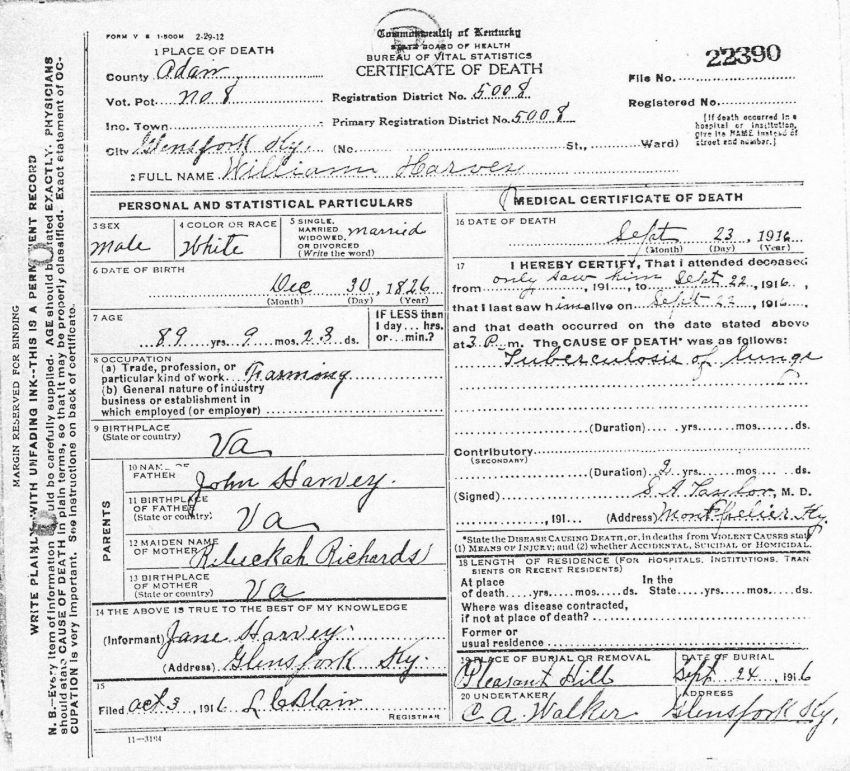 FORM V S 1-500M 2-29-12
Commonwealth of Kentucky
STATE BOARD OF HEALTH
BUREAU OF VITAL STATISTICS
CERTIFICATE OF DEATH
22390
File No.
Registered No.
[If death occurred in a hospital or institution, give its NAME instead of street and number.]
1 PLACE OF DEATH
County Adair
Vot. Pct. No. 8
Registration District No. 5008
Inc. Town
Primary Registration District No. 5008
City Glensfork Ky. (No. St., Ward)
2 FULL NAME William Harvey
PERSONAL AND STATISTICAL PARTICULARS
3 SEX
Male
4 COLOR OR RACE
White
5 SINGLE, MARRIED WIDOWED, OR DIVORCED (Write the word)
married
6 DATE OF BIRTH
Dec 30, 1826
(Month) (Day) (Year)
7 AGE
89 yrs. 9 mos. 23 ds.
IF LESS than 1 day... hrs. or... min.?
8 OCCUPATION
(a) Trade, profession, or particular kind of work Farming
(b) General nature of industry business or establishment in which employed (or employer)
9 BIRTHPLACE
(State or country)
Va
PARENTS
10 NAME OF FATHER
John Harvey.
11 BIRTHPLACE OF FATHER (State or country)
Va
12 MAIDEN NAME OF MOTHER
Rebuckah Richards
13 BIRTHPLACE OF MOTHER (State or country)
Va
14 THE ABOVE IS TRUE TO THE BEST OF MY KNOWLEDGE
(Informant) Jane Harvey.
(Address) Glensfork Ky.
15
Filed Oct 3, 1916 L C Blair
REGISTRAR
11-3184
MEDICAL CERTIFICATE OF DEATH
16 DATE OF DEATH
Sept 23, 1916
(Month) (Day) (Year)
17 I HEREBY CERTIFY, That I attended deceased
from only saw him, 191 , to Sept 22, 1916,
that I last saw him alive on Sept 22, 191 ,
and that death occurred on the date stated above
at 3 P. m. The CAUSE OF DEATH* was as follows:
Tuberculosis of lungs
(Duration) yrs. mos. ds.
Contributory
(SECONDARY)
(Duration) 2 yrs. mos. ds.
(Signed) S. A. Taylor, M. D.
, 191 (Address) Montpelier Ky.
*State the DISEASE CAUSING DEATH, or, in deaths from VIOLENT CAUSES state
(1) MEANS OF INJURY; and (2) whether ACCIDENTAL, SUICIDAL or HOMICIDAL.
18 LENGTH OF RESIDENCE (FOR HOSPITALS, INSTITUTIONS, TRAN
SIENTS OR RECENT RESIDENTS)
At place of death yrs. mos. ds. In the State yrs. mos. ds.
Where was disease contracted,
if not at place of death?
Former or
usual residence
19 PLACE OF BURIAL OR REMOVAL
Pleasant Hill
DATE OF BURIAL
Sept 24, 1916
20 UNDERTAKER
C A Walker
ADDRESS
Glensfork Ky.
MARGIN RESERVED FOR BINDING
WRITE PLAINLY WITH UNFADING INK--THIS IS A PERMANENT RECORD
N. B.--Every item of information should be carefully supplied. AGE should be stated EXACTLY. PHYSICIANS
should state CAUSE OF DEATH in plain terms, so that it may be properly classified. Exact statement of OC-
CUPATION is very important. See instructions on back of certificate.